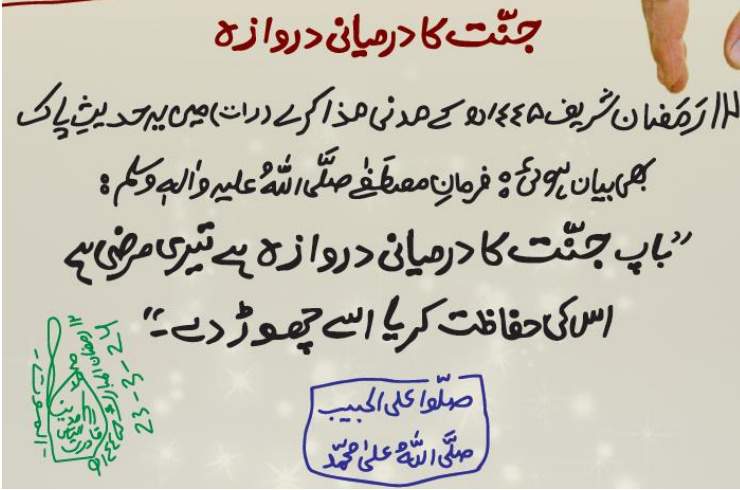 جنّت کا درمیانی دروازہ
۱۲ رَمَضان شریف ۱۴۴۵ھ کے مدنی مذاکرے (رات) میں یہ حدیثِ پاک
بھی بیان ہوئی: فرمانِ مصطَفٰے صلَّی اللہُ علیہ واٰلہٖ وسلم:
”باپ جنّت کا درمیانی دروازہ ہے تیری مرضی ہے
اس کی حفاظت کر یا اسے چھوڑ دے۔“
صلّوا علی الحبیب
صلَّی اللہُ علیٰ محمّد
23-3-24